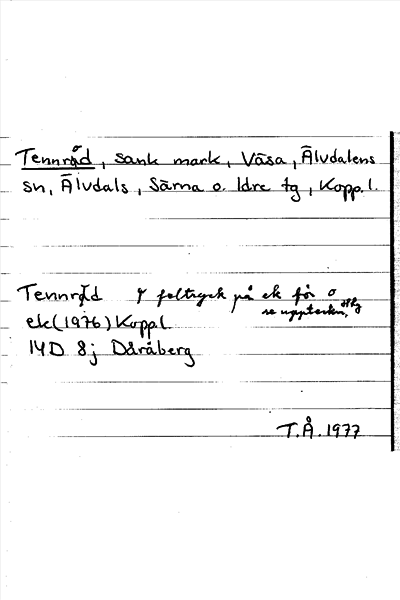 Tennråd, sank mark, Väsa, Älvdalens
sn, Älvdals, Särna o. Idre tg, Kopp. l.
Tennråd 7 feltryck på ek för o
se uppteckn.
ek (1976) Kopp. l.
14D 8j Dåråberg
T.Å. 1977